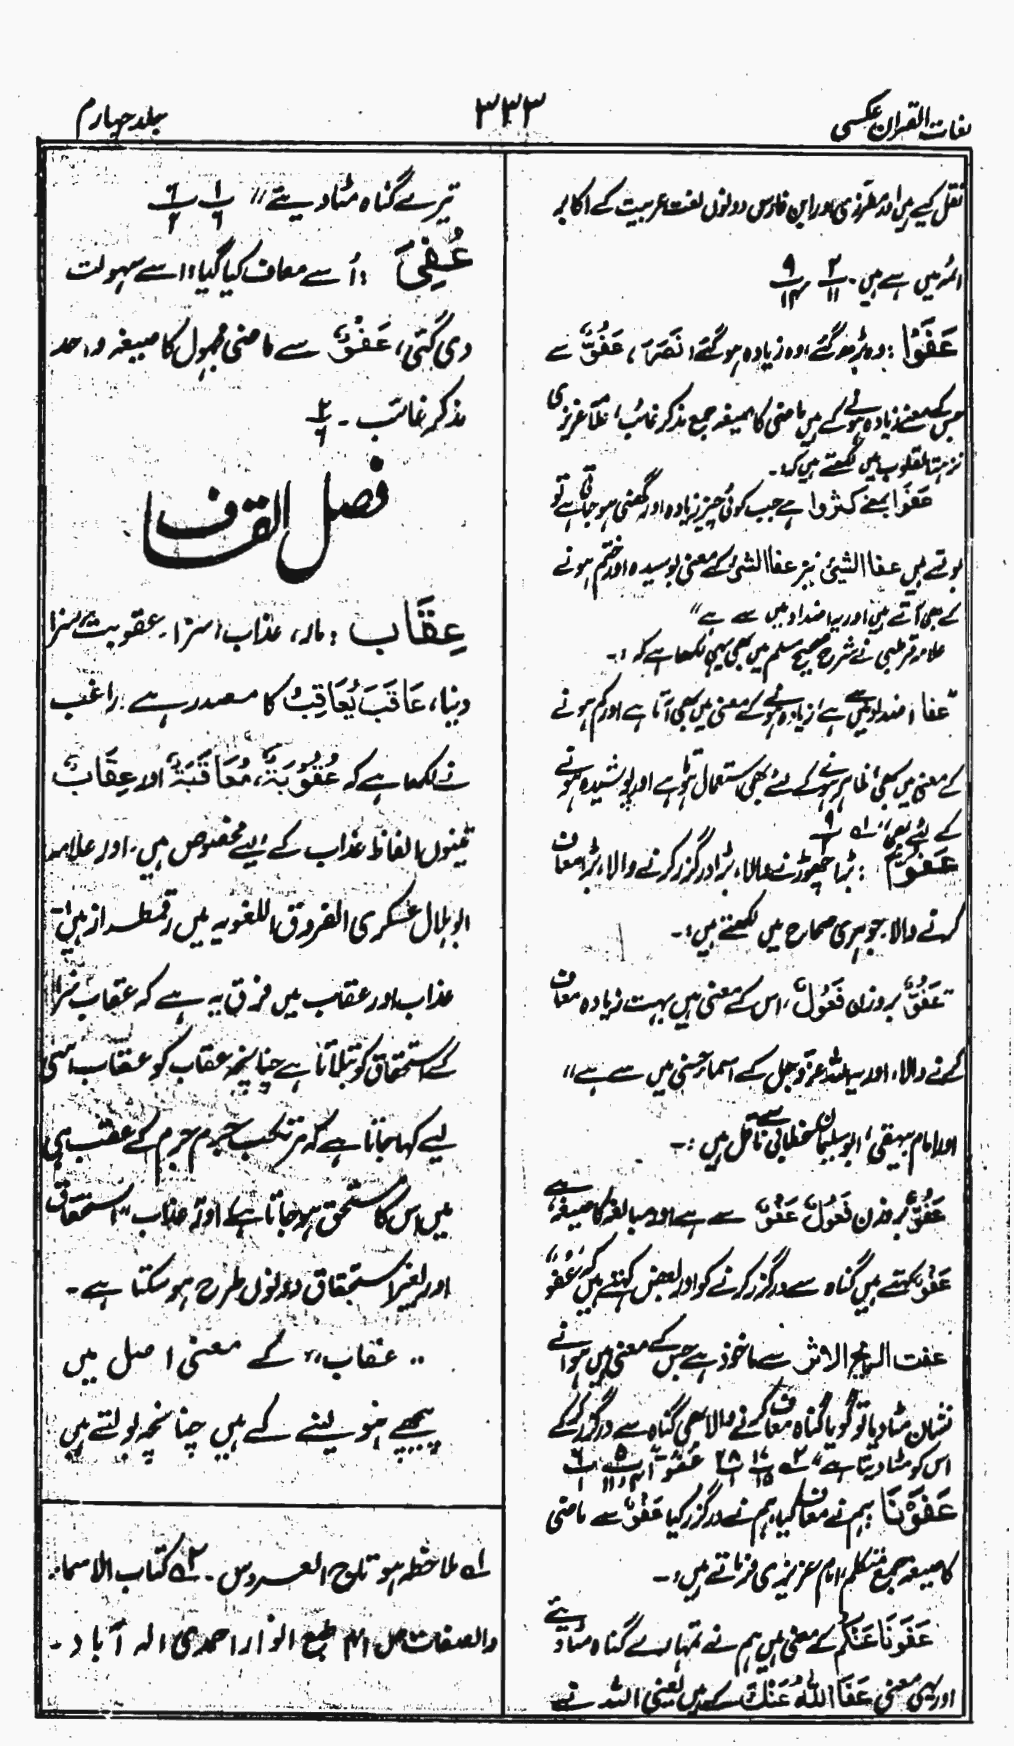 لغات القرآن عکسی
۳۳۳
جلد چہارم
نقل کیے ہیں اور مطرزی اور ابن فارس دونوں لغت عربیت کے اکابر
ائمہ میں سے ہیں۔ ۲/۱۱ ۹/۱۴
عَفَوْا : وہ بڑھ گئے، وہ زیادہ ہو گئے (نَصَرَ)، عَفْوٌ سے
جس کے معنے زیادہ ہونے کے ہیں ماضی کا صیغہ جمع مذکر غائب، علامہ عزیزی
نزہتہ القلوب میں لکھتے ہیں کہ:۔
عَفَوا بمعنے کثروا ہے جب کوئی چیز زیادہ اور گھنی ہو جاتی ہے تو
بولتے ہیں عفا الشیئ نیز عفا الشئ کے معنی بوسیدہ اور ختم ہونے
کے بھی آتے ہیں اور یہ اضداد میں سے ہے"
علامہ قرطبی نے شرح صحیح مسلم میں بھی یہی لکھا ہے کہ :۔
"عفا اضداد میں سے ہے، زیادہ ہونے کے معنی میں بھی آتا ہے اور کم ہونے
کے معنی میں بھی، ظاہر ہونے کے لئے بھی استعمال ہوتا ہے اور پوشیدہ ہونے
کے لئے بھی" لہ ۹
عَفُوٌّ : بڑا چھوڑنے والا، بڑا درگزر کرنے والا، بڑا معاف
کرنے والا۔ جوہری صحاح میں لکھتے ہیں:۔
"عَفُوٌّ بروزن فَعُولٌ، اس کے معنی ہیں بہت زیادہ معاف
کرنے والا، اور یہ اللہ عز و جل کے اسماء حسنیٰ میں سے ہے"
اور امام بیہقی، ابو سلیمان خطابی سے ناقل ہیں :۔
عَفُوٌّ بر وزن فَعُولٌ عَفْوٌ سے ہے اور مبالغہ کا صیغہ ہے،
عَفْوٌ کہتے ہیں گناہ سے درگزر کرنے کو اور بعض کہتے ہیں کہ "عَفْو"
عفت الریح الاثر سے ماخوذ ہے جس کے معنی ہیں ہوا نے
نشان مٹا دیا تو گویا گناہ معاف کرنے والا بھی گناہ سے درگزر کرکے
اس کو مٹا دیتا ہے" ۲؎ ۱۷/۱۵ ۲۸/۱ عَفُوًّا ۵ ۶/۱
عَفَوْنَا ہم نے معاف کیا، ہم نے درگزر کیا عَفْوٌ سے ماضی
کا صیغہ جمع متکلم، امام عزیزی فرماتے ہیں:۔
عَفَوْنَا عَنْكُمْ کے معنی ہیں ہم نے تمہارے گناہ مٹا دیئے
اور یہی معنی عَفَا اللّٰهُ عَنْكَ کے ہیں یعنی اللہ نے
تیرے گناہ مٹا دیئے" ۱/۶ ۶/۲
عُفِيَ : اُسے معاف کیا گیا، اسے سہولت
دی گئی، عَفْوٌ سے ماضی مجہول کا صیغہ واحد
مذکر غائب۔ ۲/۶
فصل القاف
عِقَاب : مار، عذاب، سزا۔ عقوبت، سزا
دینا، عَاقَبَ یُعَاقِبُ کا مصدر ہے۔ راغب
نے لکھا ہے کہ عُقُوْبَةٌ، مُعَاقَبَةٌ اور عِقَابٌ
تینوں الفاظ عذاب کے لیے مخصوص ہیں۔ اور علامہ
ابو ہلال عسکری الفروق اللغویہ میں رقمطراز ہیں:۔
عذاب اور عقاب میں فرق یہ ہے کہ عقاب سزا
کے استحقاق کو بتلاتا ہے چنانچہ عقاب کو عقاب اسی
لیے کہا جاتا ہے کہ مرتکب جرم جرم کے عقب ہی
میں اس کا مستحق ہو جاتا ہے اور عذاب "استحقاق
اور بغیر استحقاق دونوں طرح ہو سکتا ہے۔
"عقاب" کے معنی اصل میں
پیچھے ہو لینے کے ہیں چنانچہ بولتے ہیں
۱؎ ملاحظہ ہو تاج العروس۔ ۲؎ کتاب الاسماء
والصفات ص ۴۱ طبع انوار احمدی الہ آباد۔